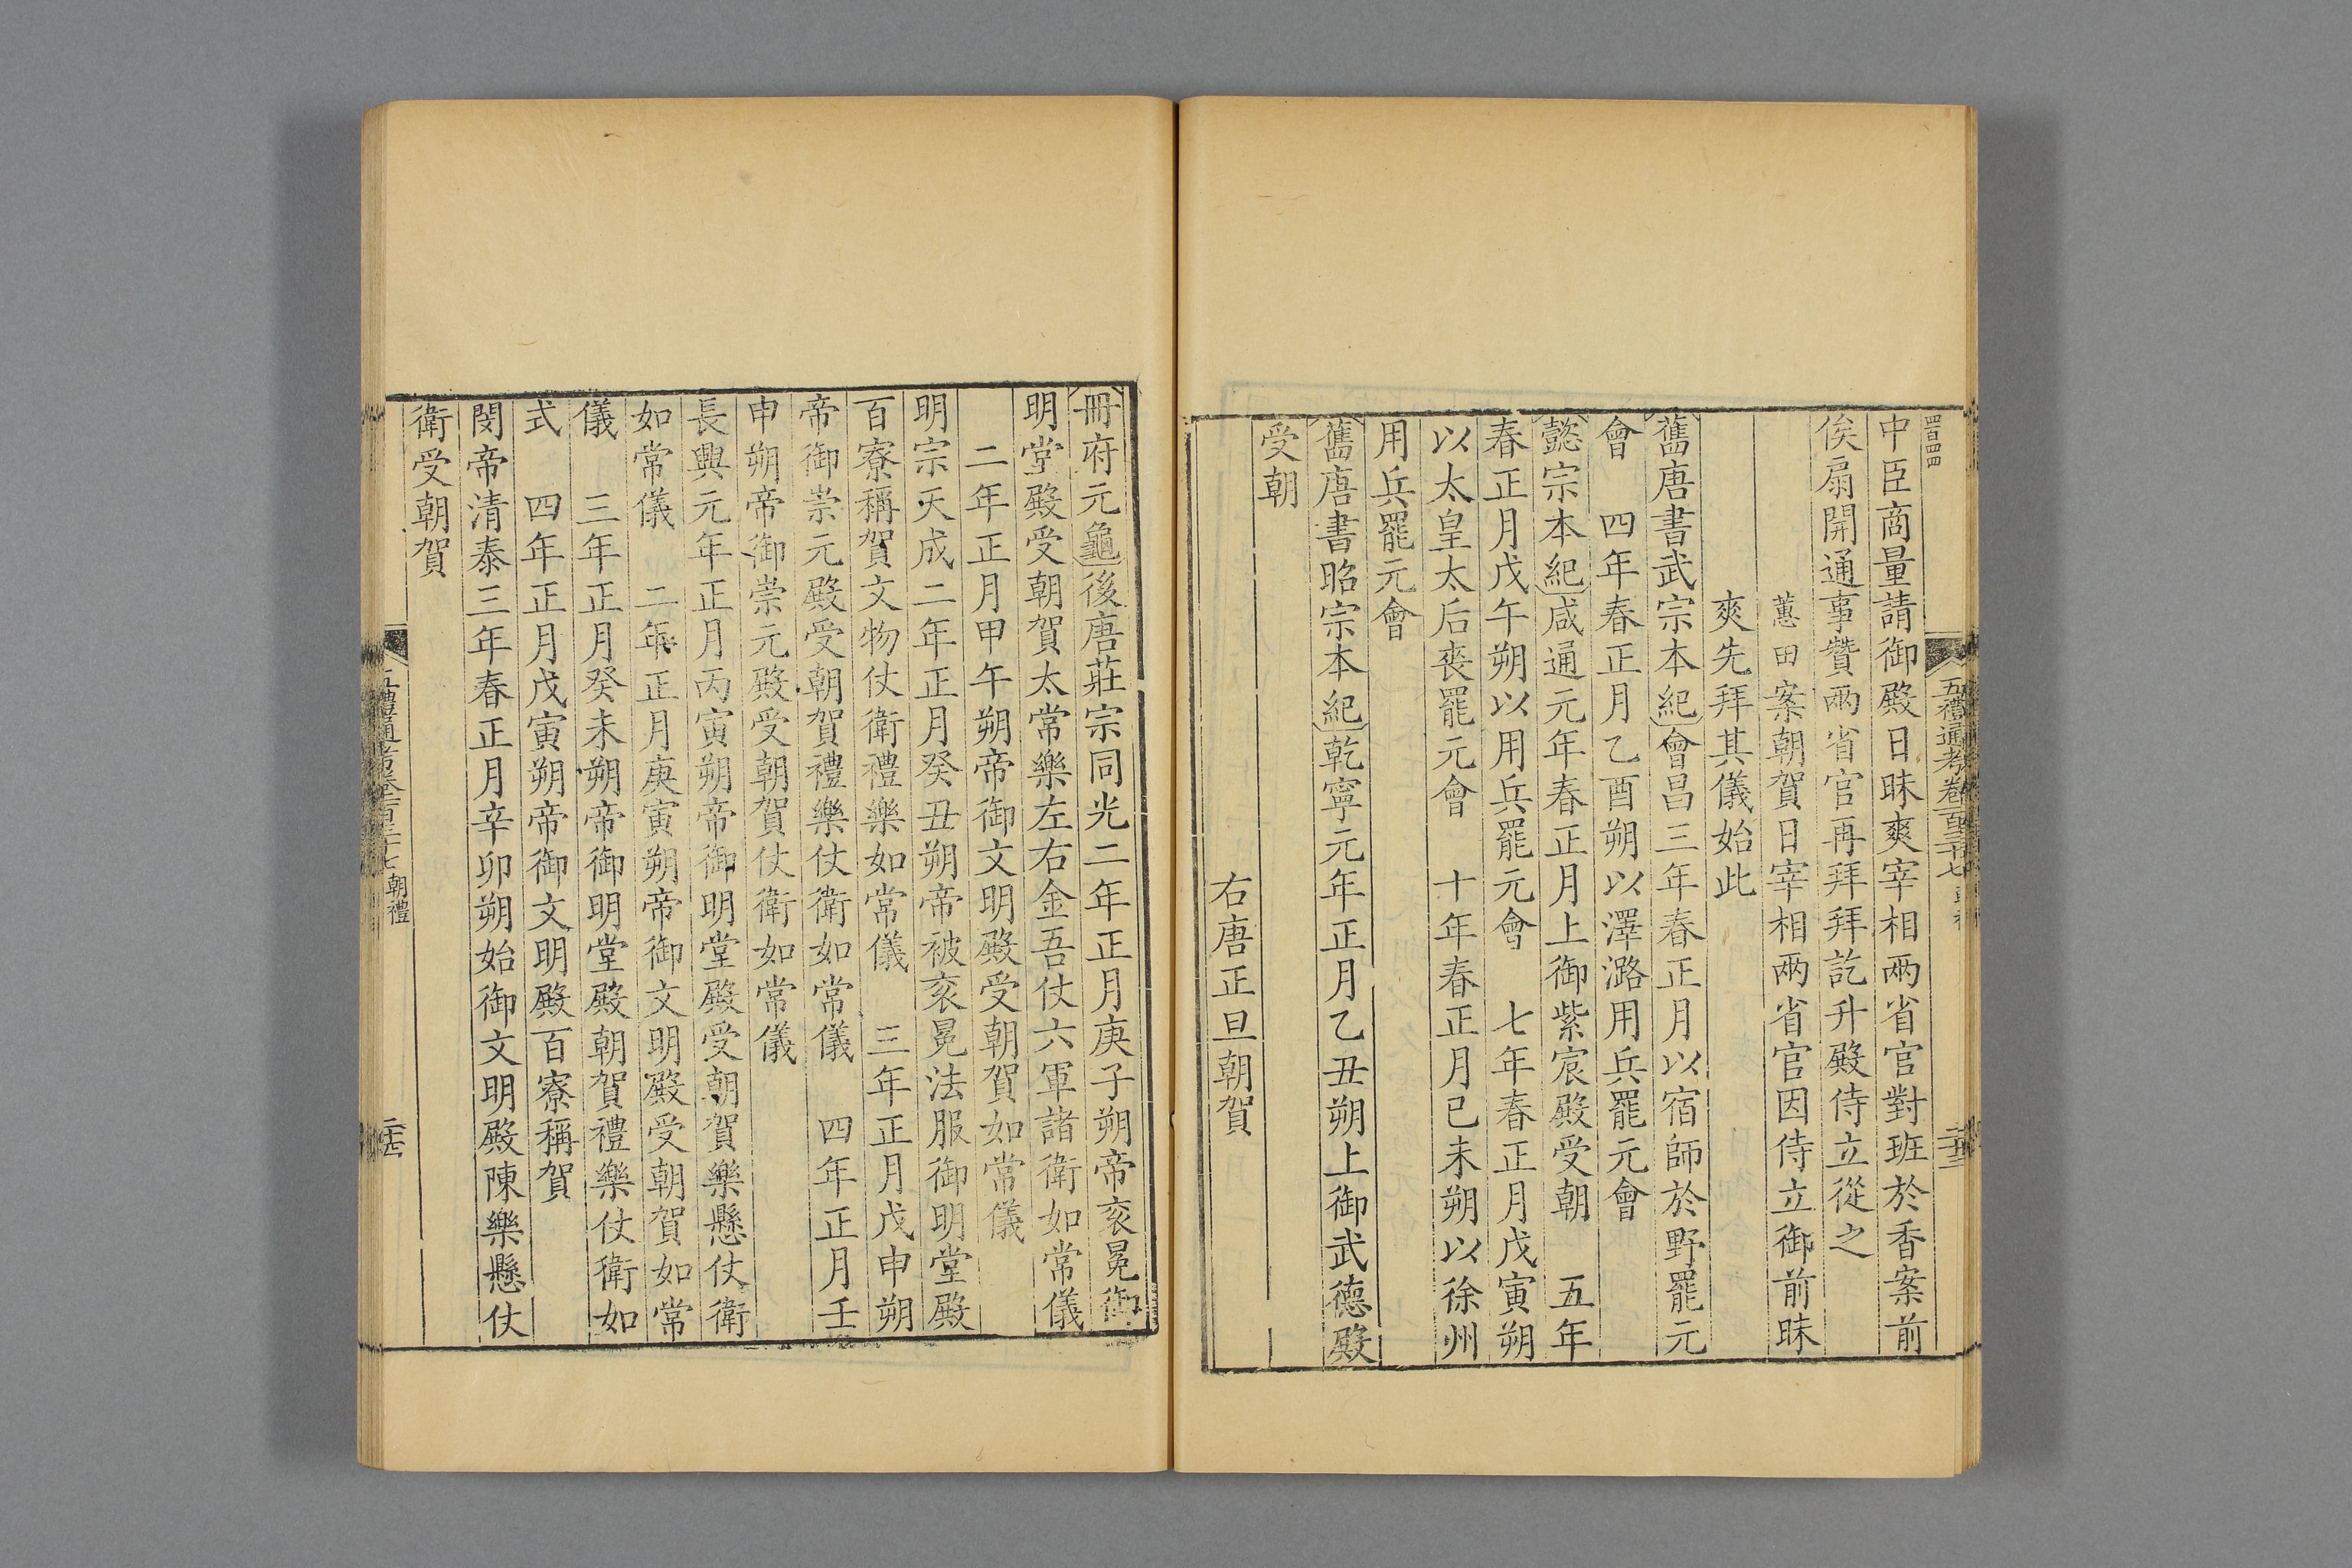 中臣商量請御殿日昧爽宰相兩省官對班於香案前
俟扇開通事贊兩省官再拜拜訖升殿侍立從之
蕙田案朝賀日宰相兩省官因侍立御前昧
爽先拜其儀始此
舊唐書武宗本紀會昌三年春正月以宿師於野罷元
會　四年春正月乙酉朔以澤潞用兵罷元會
懿宗本紀咸通元年春正月上御紫宸殿受朝　五年
春正月戊午朔以用兵罷元會　七年春正月戊寅朔
以太皇太后喪罷元會　十年春正月已未朔以徐州
用兵罷元會
舊唐書昭宗本紀乾寧元年正月乙丑朔上御武德殿
受朝
右唐正旦朝賀
冊府元龜後唐莊宗同光二年正月庚子朔帝衮冕御
明堂殿受朝賀太常樂左右金吾仗六軍諸衛如常儀
二年正月甲午朔帝御文明殿受朝賀如常儀
明宗天成二年正月癸丑朔帝被衮冕法服御明堂殿
百寮稱賀文物仗衛禮樂如常儀　三年正月戊申朔
帝御崇元殿受朝賀禮樂仗衛如常儀　四年正月壬
申朔帝御崇元殿受朝賀仗衛如常儀
長興元年正月丙寅朔帝御明堂殿受朝賀樂懸仗衛
如常儀　二年正月庚寅朔帝御文明殿受朝賀如常
儀　三年正月癸未朔帝御明堂殿朝賀禮樂仗衛如
式　四年正月戊寅朔帝御文明殿百寮稱賀
閔帝清泰三年春正月辛卯朔始御文明殿陳樂懸仗
衛受朝賀
五禮通考卷一百三十七 朝禮